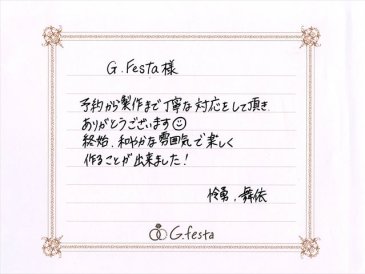 G.Festa様
予約から製作まで丁寧な対応をして頂き
ありがとうございます☺
終始、和やかな雰囲気で楽しく
作ることが出来ました!
怜勇、舞依
G.festa